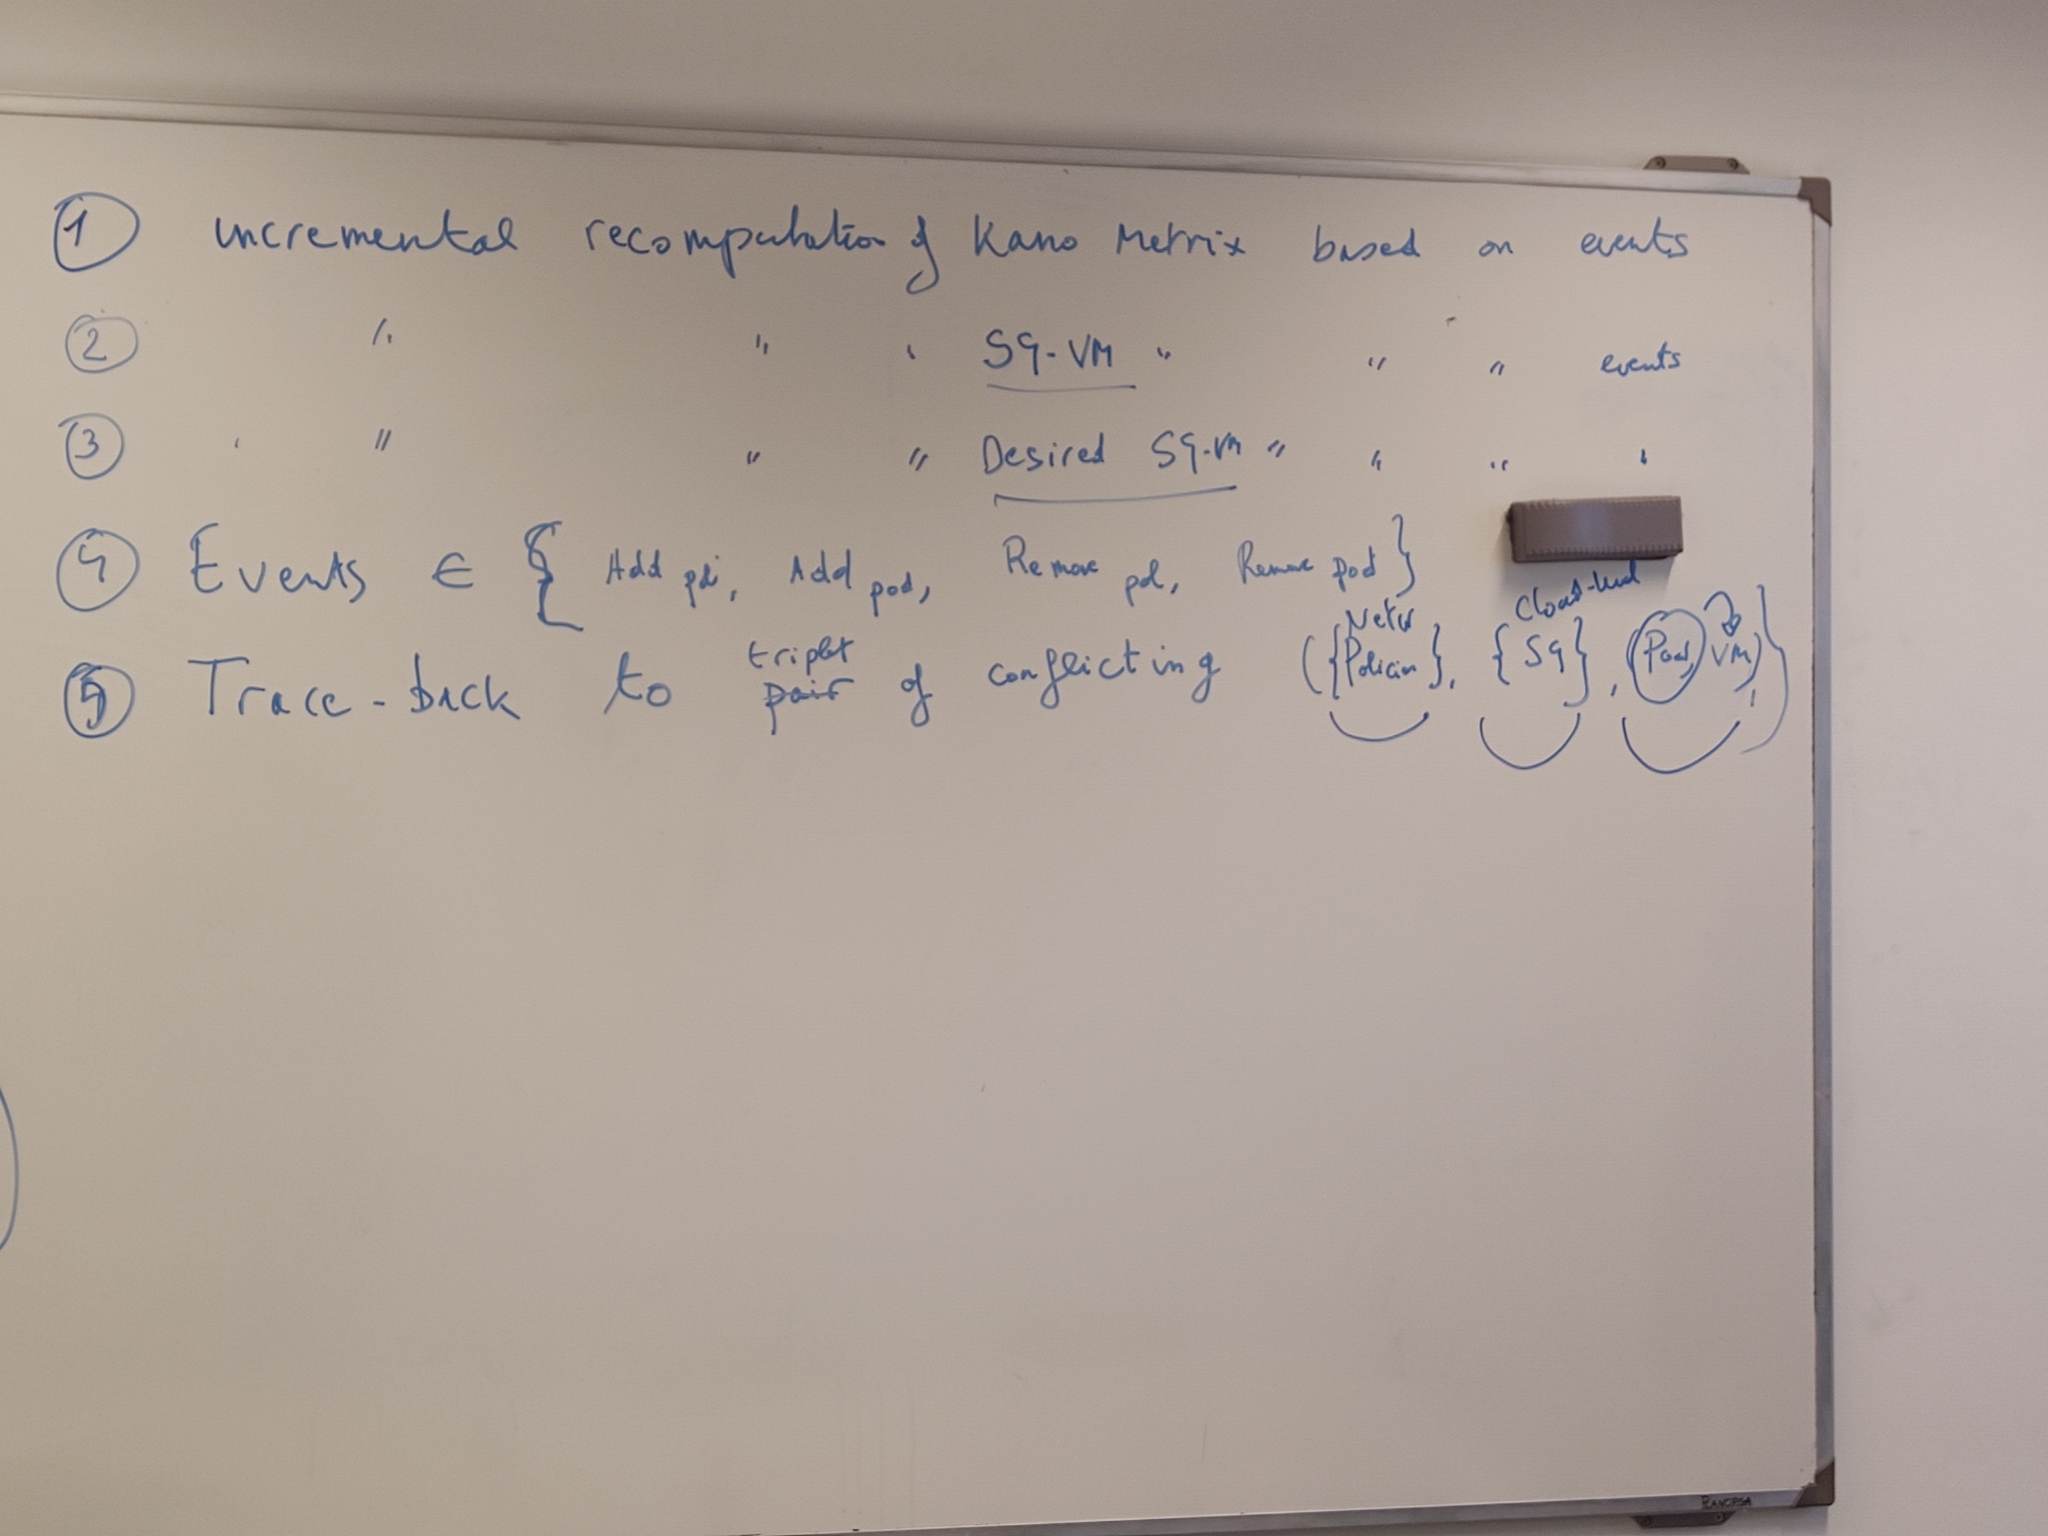 ① incremental recomputation of Kano Metrix based on events
② " " " SG-VM " " " events
③ " " " " Desired SG-VM " " " "
④ Events ∈ { Add pol, Add pod, Remove pol, Remove pod }
⑤ Trace-back to triplet pair of conflicting ({Policies}, {SG}, (Pod, VM)}